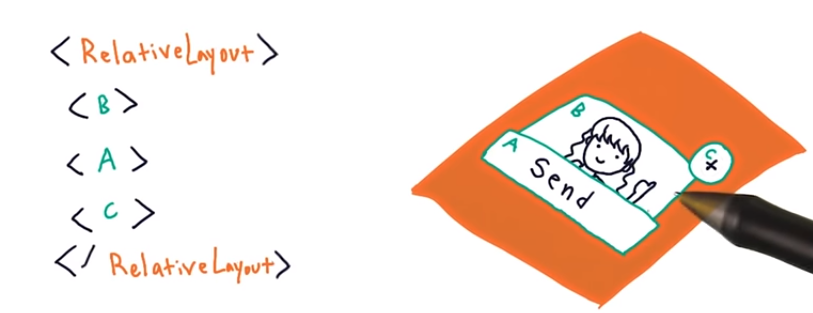 <RelativeLayout>
<B>
<A>
<C>
</RelativeLayout>
B
A
Send
C
x